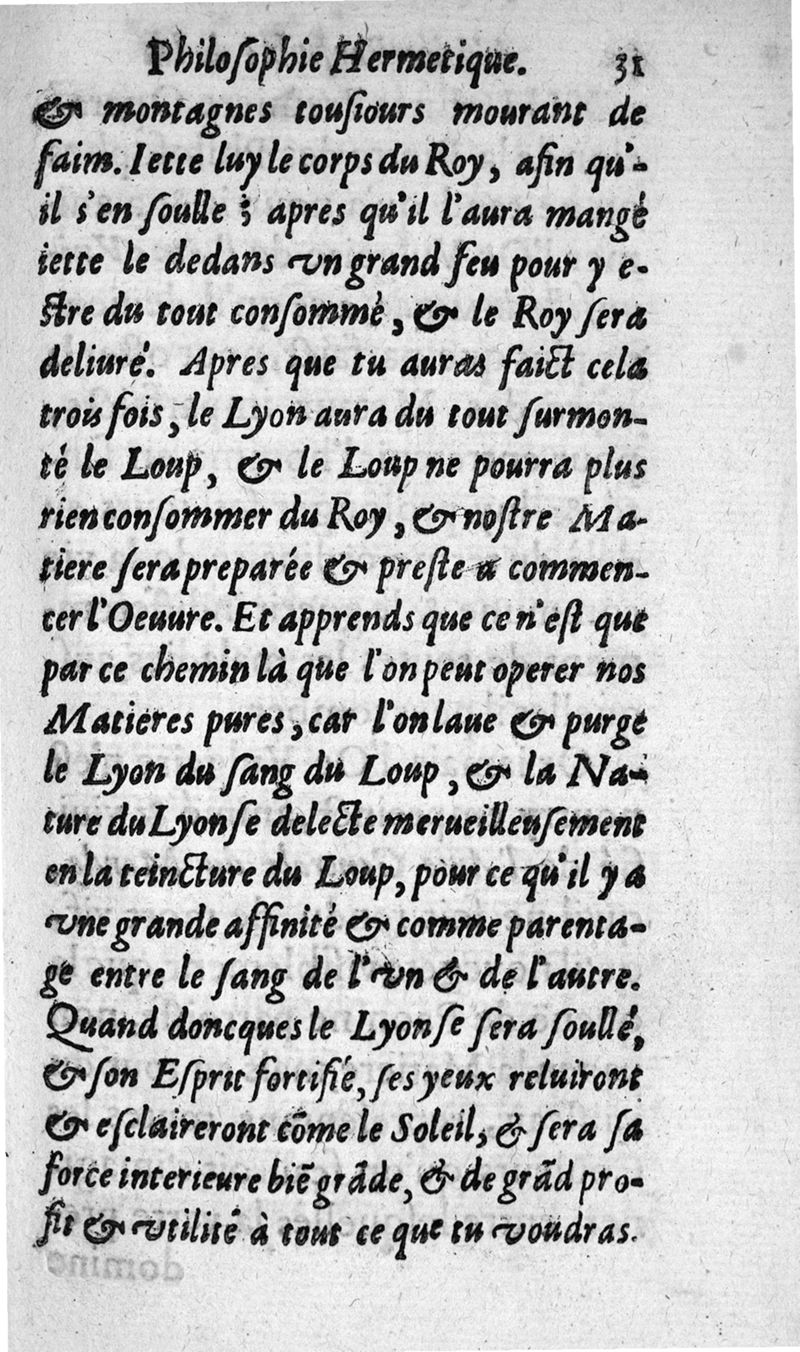 Philoſophie Hermetique. 31
& montagnes touſiours mourant de
faim. Iette luy le corps du Roy, afin qu'-
il s'en ſoulle ; apres qu'il l'aura mangé
iette le dedans vn grand feu pour y e-
ſtre du tout conſommé, & le Roy ſera
deliuré. Apres que tu auras faict cela
trois fois, le Lyon aura du tout ſurmon-
té le Loup, & le Loup ne pourra plus
rien conſommer du Roy, & noſtre Ma-
tiere ſera preparée & preſte a commen-
cer l'Oeuure. Et apprends que ce n'eſt que
par ce chemin là que l'on peut operer nos
Matieres pures, car l'on laue & purge
le Lyon du ſang du Loup, & la Na-
ture du Lyon ſe delecte merueilleuſement
en la teincture du Loup, pour ce qu'il y a
vne grande affinité & comme parenta-
ge entre le ſang de l'vn & de l'autre.
Quand doncques le Lyon ſe ſera ſoullé,
& ſon Eſprit fortifié, ſes yeux reluiront
& eſclaireront cõme le Soleil, & ſera ſa
force interieure biẽ grãde, & de grãd pro-
fit & vtilité à tout ce que tu voudras.